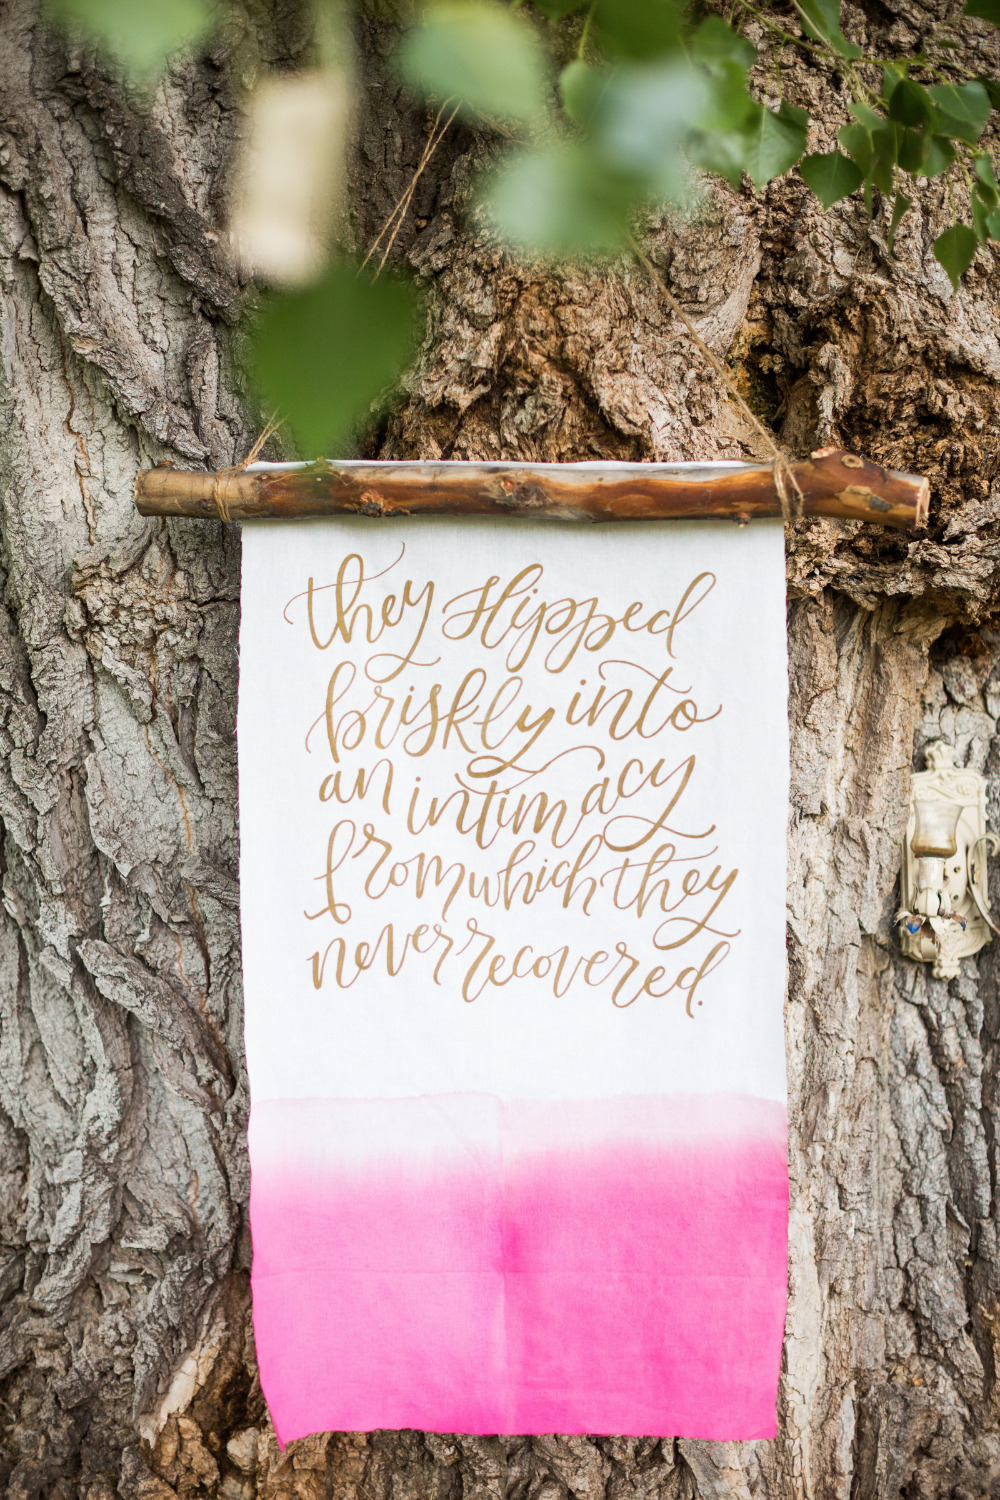 they slipped
briskly into
an intimacy
from which they
never recovered.